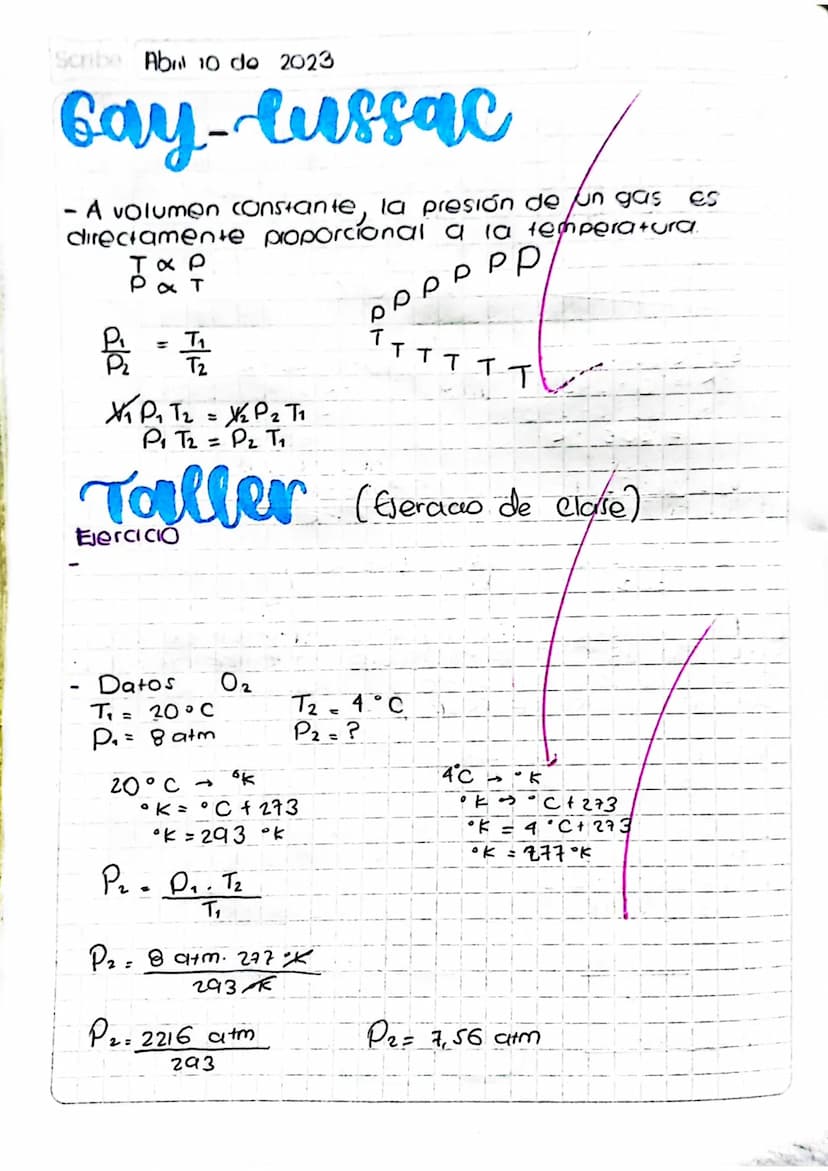 Scribe Abril 10 de 2023
Gay-Lussac
- A volumen constante, la presión de un gas es
directamente proporcional a la temperatura.
T ∝ P
P ∝ T
P P P P P P
T T T T T T
P₁/P₂ = T₁/T₂
V₁ P₁ T₂ = V₂ P₂ T₁
P₁ T₂ = P₂ T₁
Taller (Ejercicio de clase)
Ejercicio
-
- Datos O₂
T₁ = 20°C T₂ = 4°C
P₁ = 8 atm P₂ = ?
20°C → °K 4°C → °K
°K = °C + 273 °K → °C + 273
°K = 293 °K °K = 4°C + 273
°K = 277 °K
P₂ = P₁ . T₂ / T₁
P₂ = 8 atm. 277 °K / 293 °K
P₂ = 2216 atm / 293 P₂ = 7,56 atm